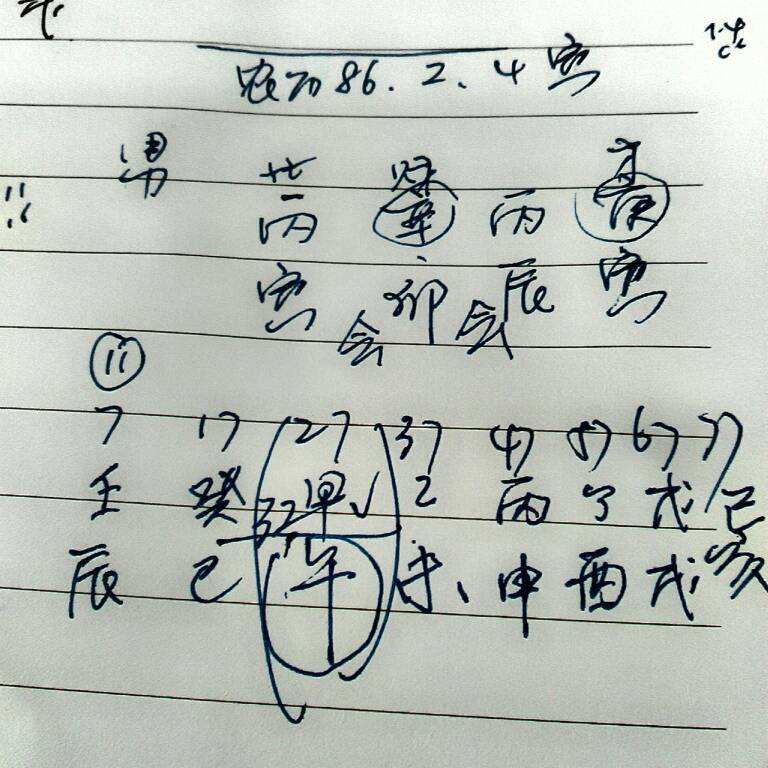 农历86.2.4寅
男 丙 辛 丙 庚
寅 卯 辰 寅
会 会
11
7 17 27 37 47 57 67 77
壬 癸 甲 乙 丙 丁 戊 己
32
辰 巳 午 未 申 酉 戌 亥